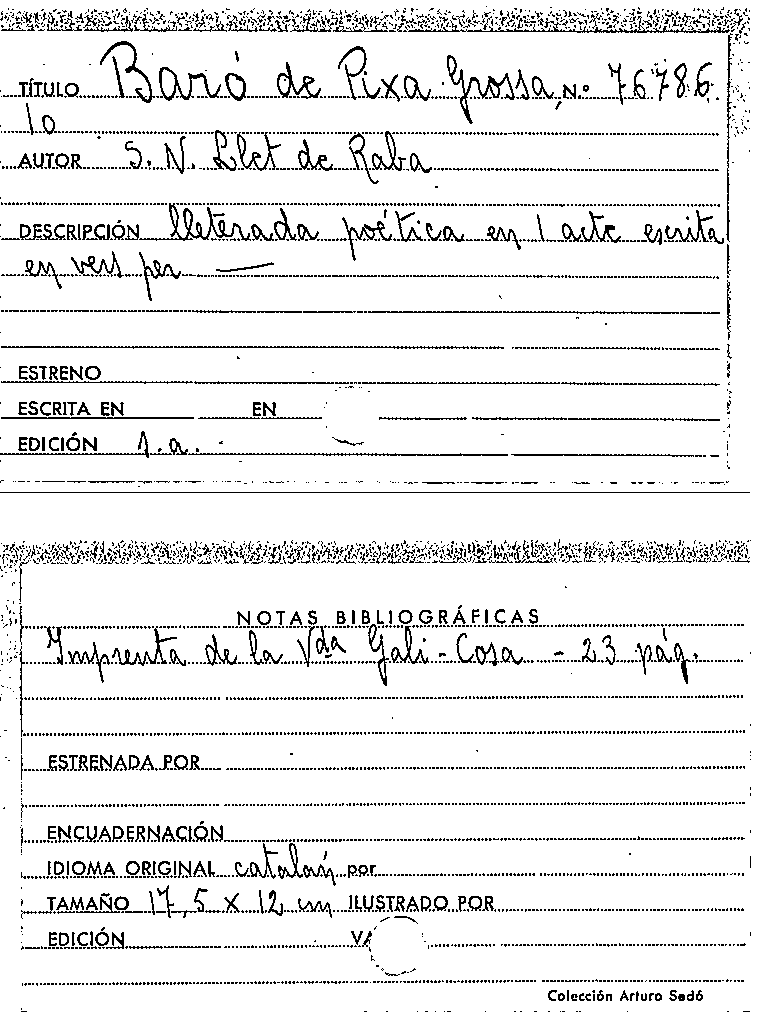 TÍTULO Baró de Pixa Grossa, N.º 76786
10
AUTOR S. N. Llet de Raba
DESCRIPCIÓN lleterada poética en 1 acte escrita
en vers per —
ESTRENO
ESCRITA EN EN
EDICIÓN 1.a.
NOTAS BIBLIOGRÁFICAS
Imprenta de la Vda Gali-Cosa - 23 pág.
ESTRENADA POR
ENCUADERNACIÓN
IDIOMA ORIGINAL catalán por
TAMAÑO 17,5 x 12 cm ILUSTRADO POR
EDICIÓN
Colección Arturo Sedó